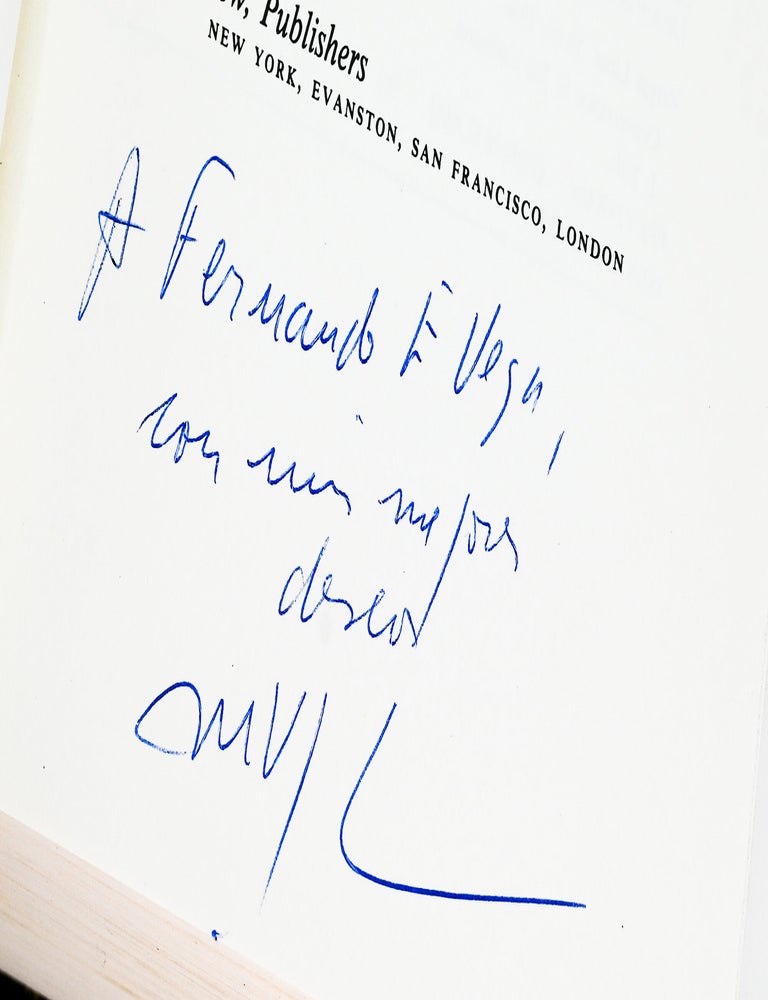 Publishers
NEW YORK, EVANSTON, SAN FRANCISCO, LONDON
A Fernando E Vega,
con mis mejores
deseos